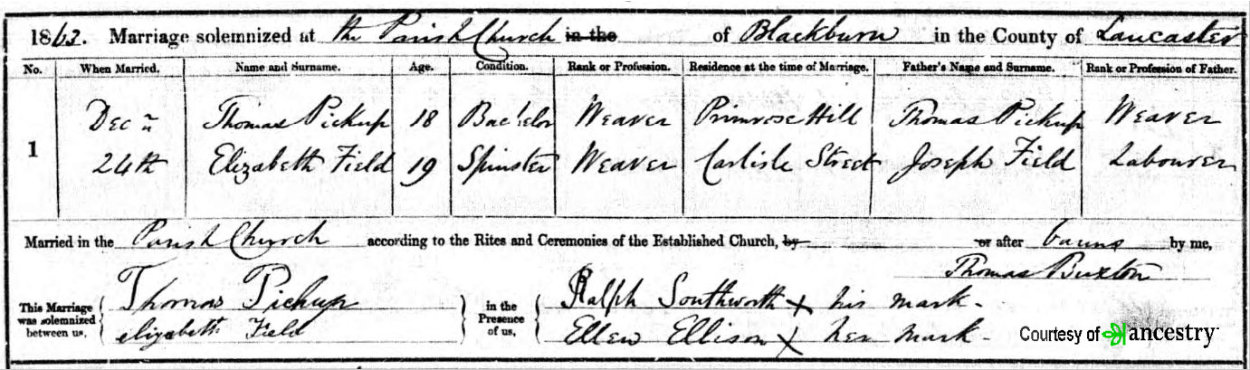 1863. Marriage solemnized at the Parish Church in the of Blackburn in the County of Lancaster
No. When Married. Name and Surname. Age. Condition. Rank or Profession. Residence at the time of Marriage. Father's Name and Surname. Rank or Profession of Father.
1 Decr 24th Thomas Pickup 18 Bachelor Weaver Primrose Hill Thomas Pickup Weaver
Elizabeth Field 19 Spinster Weaver Carlisle Street Joseph Field Labourer
Married in the Parish Church according to the Rites and Ceremonies of the Established Church, by or after banns by me,
Thomas Buxton
This Marriage was solemnized between us, Thomas Pickup
elizabeth Field
in the Presence of us, Ralph Southworth X his mark
Ellen Ellison X her mark
Courtesy of ancestry